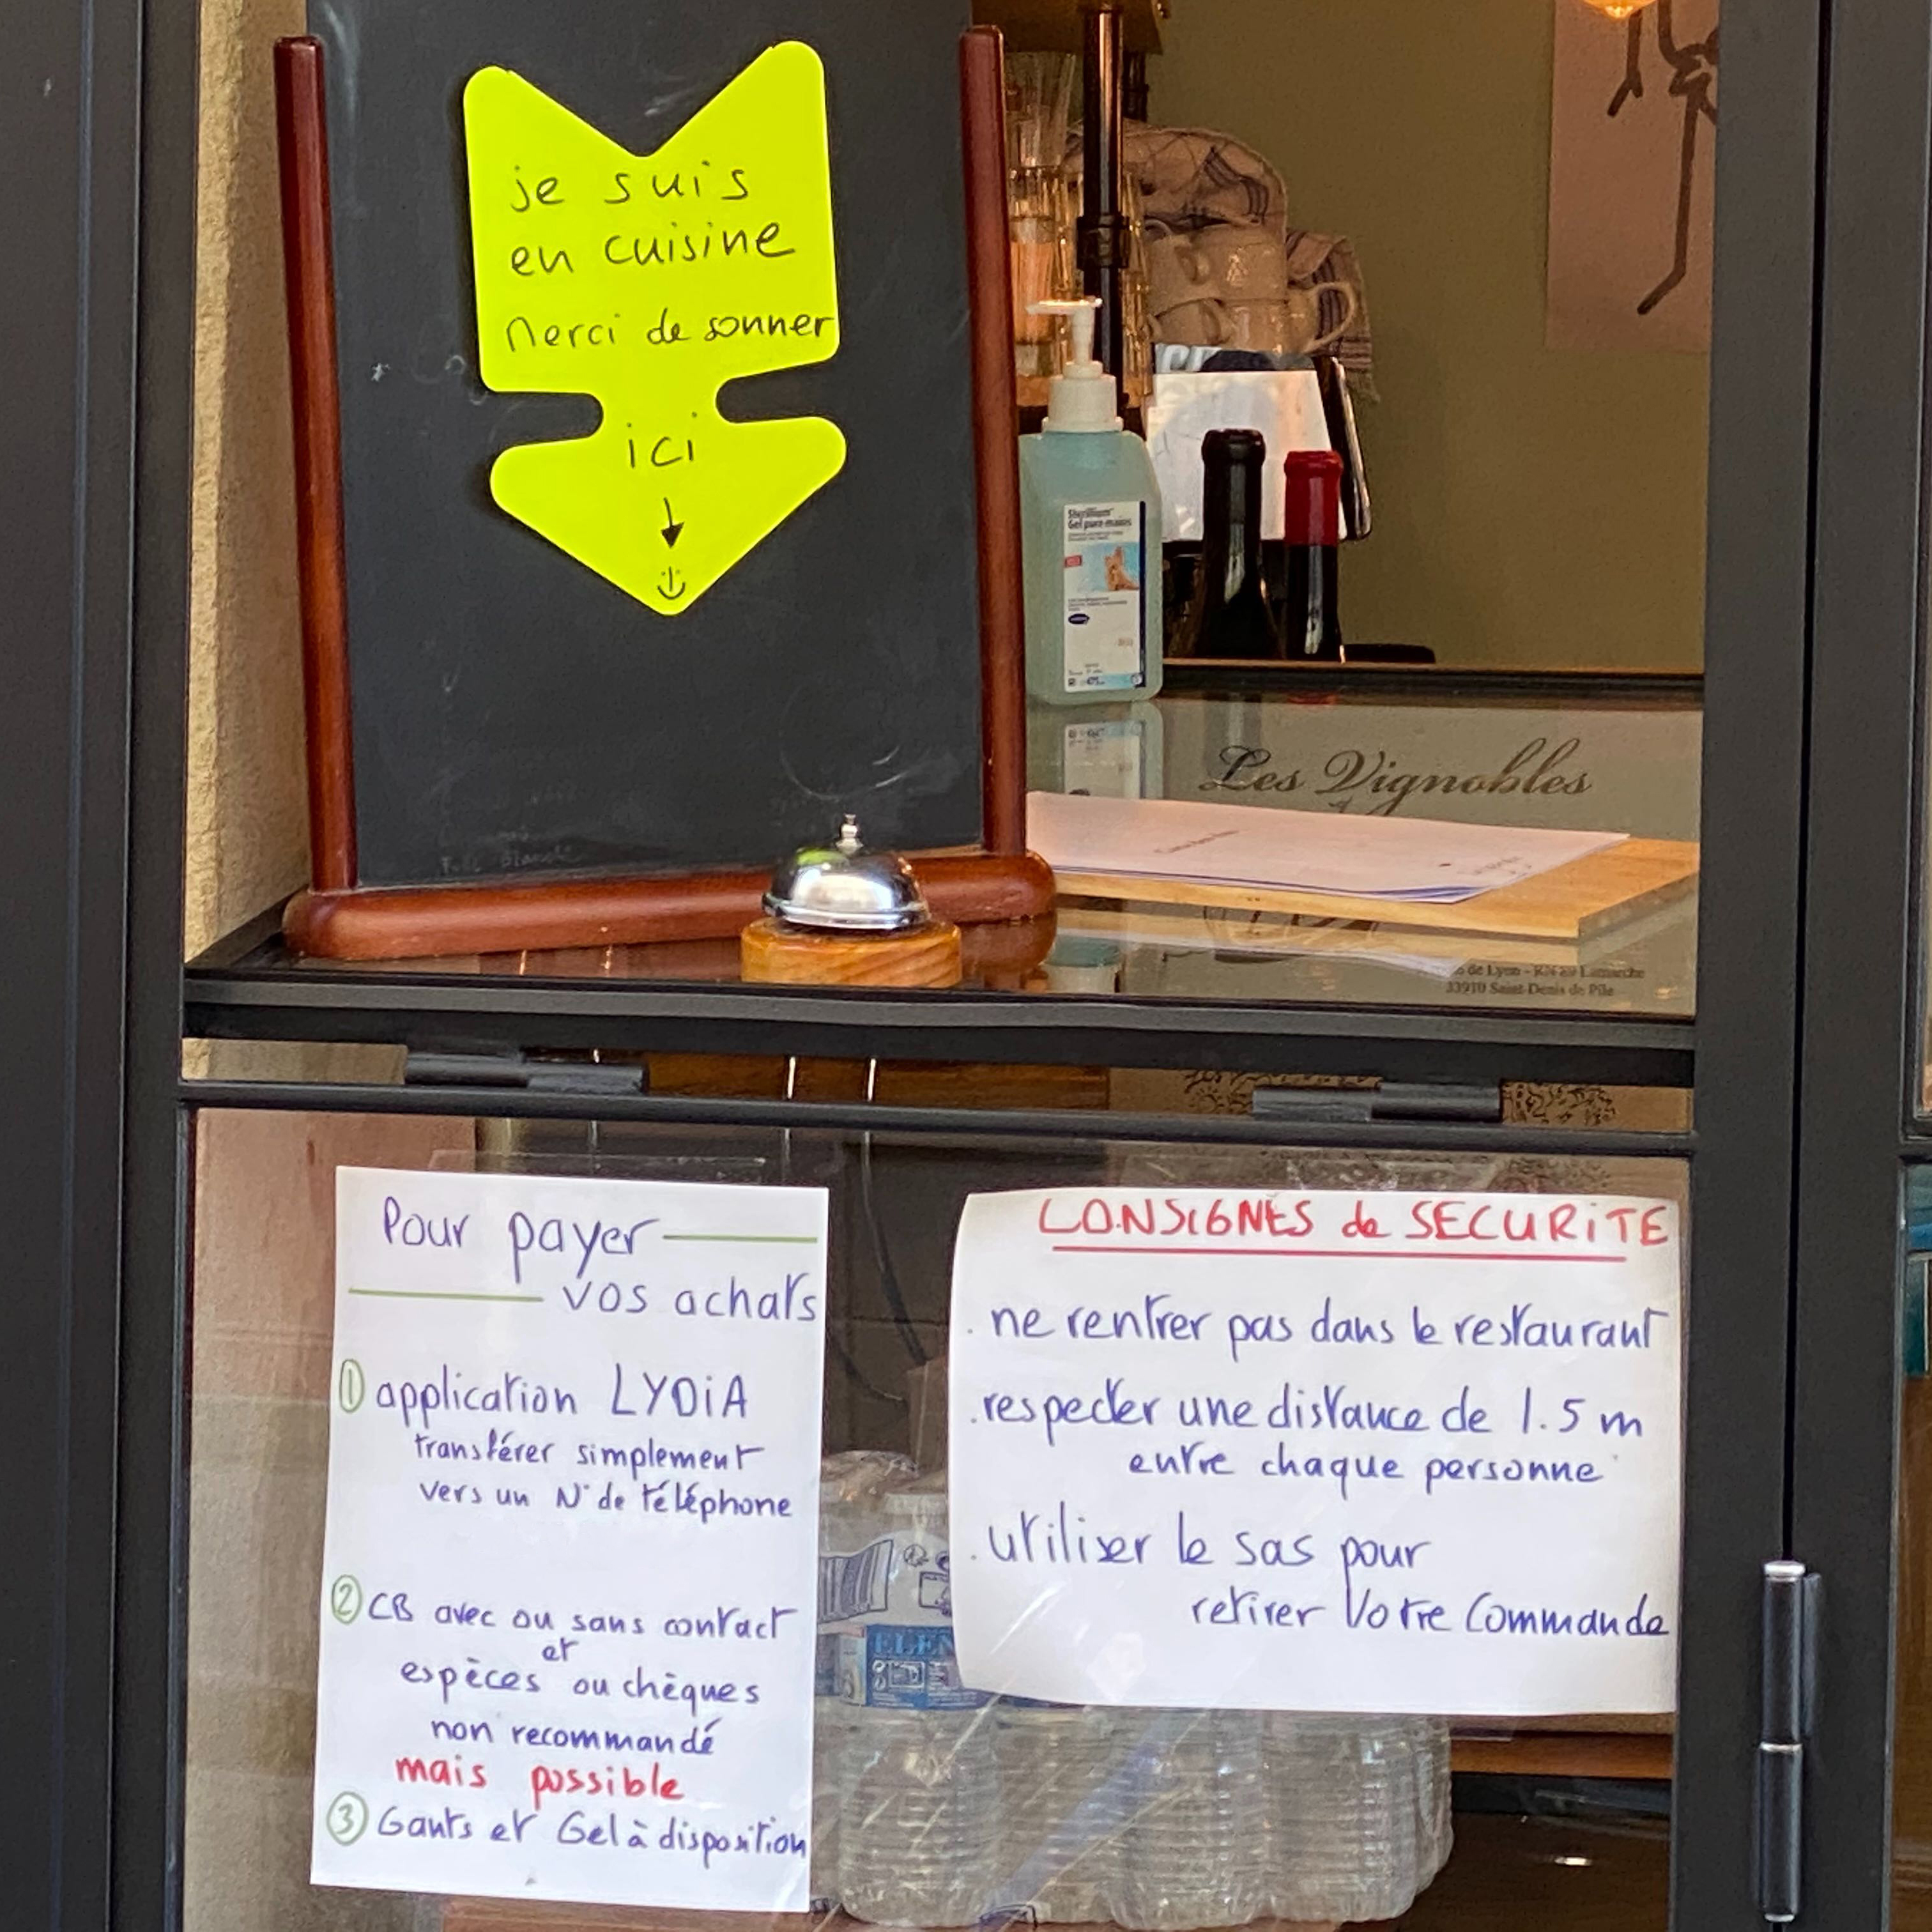 je suis
en cuisine
Merci de sonner
ici
Sterillium
Gel pure mains
475
Les Vignobles
de Lyon - RN 89 Lamarche
33910 Saint-Denis de Pile
Pour payer
vos achats
① application LYDiA
transférer simplement
vers un N° de téléphone
② CB avec ou sans contact
et
espèces ou chèques
non recommandé
mais possible
③ Gants et Gel à disposition
CONSIGNES de SECURITE
. ne rentrer pas dans le restaurant
. respecter une distance de 1.5 m
entre chaque personne
. utiliser le sas pour
retirer Votre Commande
ELEN